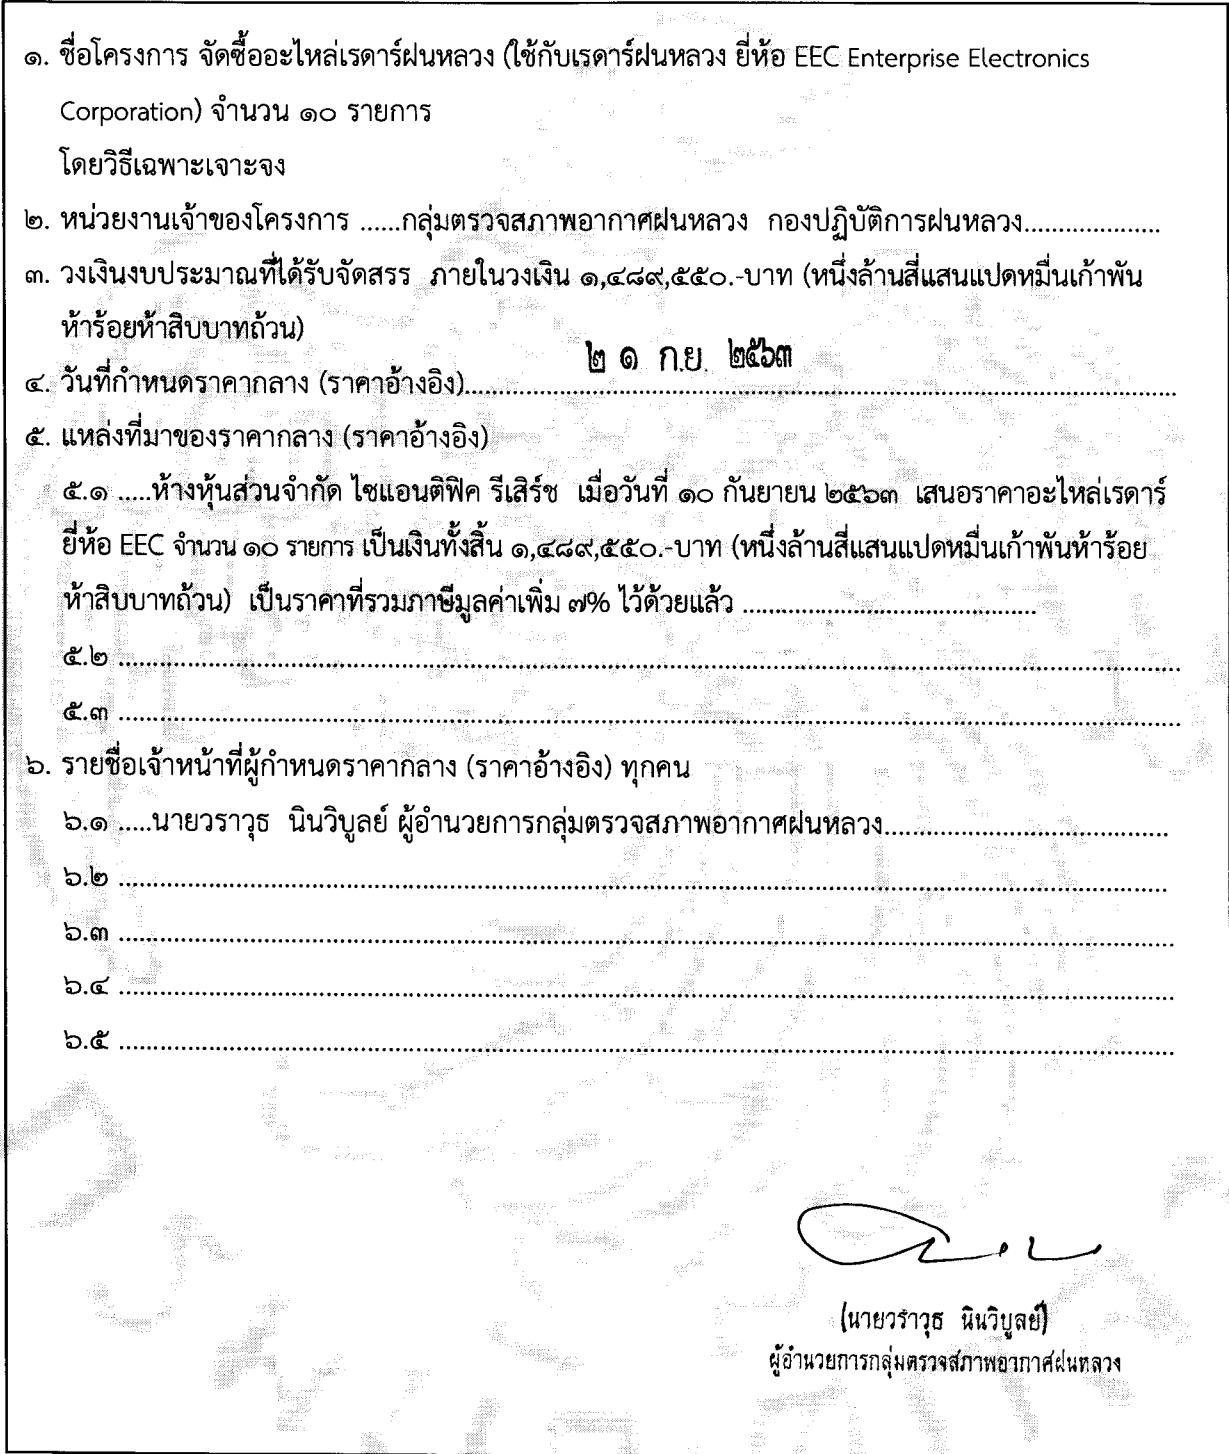 ๑. ชื่อโครงการ จัดซื้ออะไหล่เรดาร์ฝนหลวง (ใช้กับเรดาร์ฝนหลวง ยี่ห้อ EEC Enterprise Electronics
Corporation) จำนวน ๑๐ รายการ
โดยวิธีเฉพาะเจาะจง
๒. หน่วยงานเจ้าของโครงการ ......กลุ่มตรวจสภาพอากาศฝนหลวง กองปฏิบัติการฝนหลวง....................
๓. วงเงินงบประมาณที่ได้รับจัดสรร ภายในวงเงิน ๑,๔๘๙,๕๕๐.-บาท (หนึ่งล้านสี่แสนแปดหมื่นเก้าพัน
ห้าร้อยห้าสิบบาทถ้วน)
๔. วันที่กำหนดราคากลาง (ราคาอ้างอิง)..........๒ ๑ ก.ย. ๒๕๖๓..........
๕. แหล่งที่มาของราคากลาง (ราคาอ้างอิง)
๕.๑ .....ห้างหุ้นส่วนจำกัด ไซแอนติฟิค รีเสิร์ช เมื่อวันที่ ๑๐ กันยายน ๒๕๖๓ เสนอราคาอะไหล่เรดาร์
ยี่ห้อ EEC จำนวน ๑๐ รายการ เป็นเงินทั้งสิ้น ๑,๔๘๙,๕๕๐.-บาท (หนึ่งล้านสี่แสนแปดหมื่นเก้าพันห้าร้อย
ห้าสิบบาทถ้วน) เป็นราคาที่รวมภาษีมูลค่าเพิ่ม ๗% ไว้ด้วยแล้ว ..........................................
๕.๒ ....................
๕.๓ ....................
๖. รายชื่อเจ้าหน้าที่ผู้กำหนดราคากลาง (ราคาอ้างอิง) ทุกคน
๖.๑ .....นายวราวุธ นินวิบูลย์ ผู้อำนวยการกลุ่มตรวจสภาพอากาศฝนหลวง....................
๖.๒ ....................
๖.๓ ....................
๖.๔ ....................
๖.๕ ....................
(นายวราวุธ นินวิบูลย์)
ผู้อำนวยการกลุ่มตรวจสภาพอากาศฝนหลวง